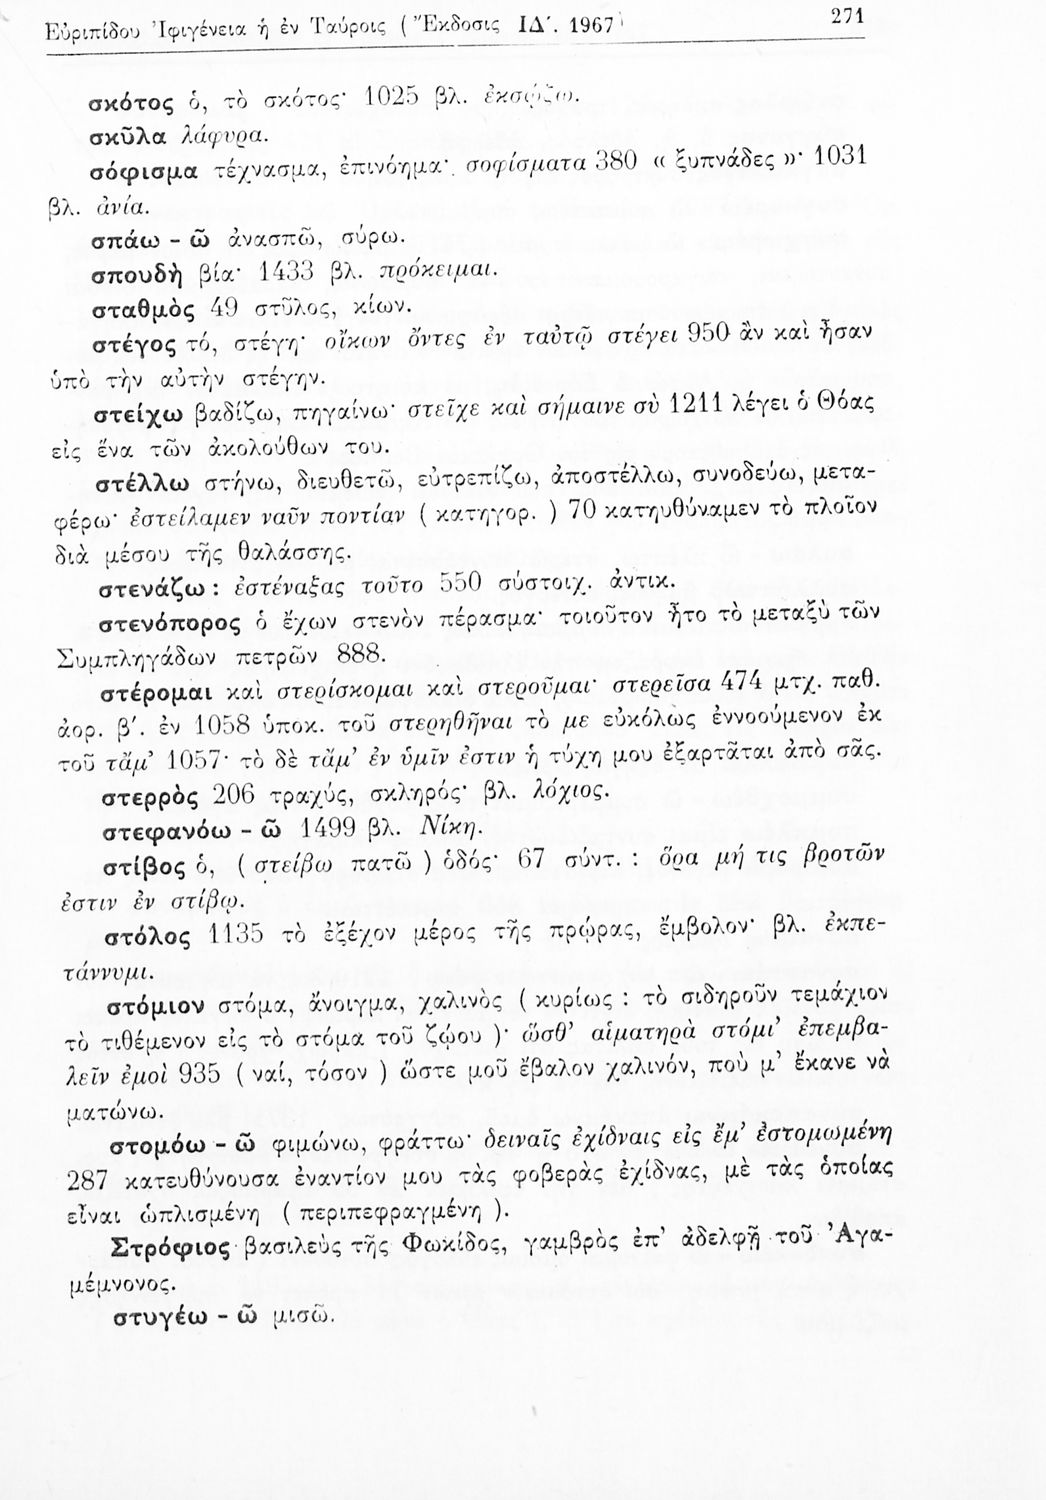 Εὐριπίδου Ἰφιγένεια ἡ ἐν Ταύροις ( Ἔκδοσις ΙΔ΄. 1967 271
σκότος ὁ, τὸ σκότος· 1025 βλ. ἐκσῴζω.
σκῦλα λάφυρα.
σόφισμα τέχνασμα, ἐπινόημα· σοφίσματα 380 « ξυπνάδες »· 1031
βλ. ἀνία.
σπάω - ῶ ἀνασπῶ, σύρω.
σπουδὴ βία· 1433 βλ. πρόκειμαι.
σταθμὸς 49 στῦλος, κίων.
στέγος τό, στέγη· οἴκων ὄντες ἐν ταὐτῷ στέγει 950 ἂν καὶ ἦσαν
ὑπὸ τὴν αὐτὴν στέγην.
στείχω βαδίζω, πηγαίνω· στεῖχε καὶ σήμαινε σὺ 1211 λέγει ὁ Θόας
εἰς ἕνα τῶν ἀκολούθων του.
στέλλω στήνω, διευθετῶ, εὐτρεπίζω, ἀποστέλλω, συνοδεύω, μετα-
φέρω· ἐστείλαμεν ναῦν ποντίαν ( κατηγορ. ) 70 κατηυθύναμεν τὸ πλοῖον
διὰ μέσου τῆς θαλάσσης.
στενάζω : ἐστέναξας τοῦτο 550 σύστοιχ. ἀντικ.
στενόπορος ὁ ἔχων στενὸν πέρασμα· τοιοῦτον ἦτο τὸ μεταξὺ τῶν
Συμπληγάδων πετρῶν 888.
στέρομαι καὶ στερίσκομαι καὶ στεροῦμαι· στερεῖσα 474 μτχ. παθ.
ἀορ. β΄. ἐν 1058 ὑποκ. τοῦ στερηθῆναι τὸ με εὐκόλως ἐννοούμενον ἐκ
τοῦ τἄμ’ 1057· τὸ δὲ τἄμ’ ἐν ὑμῖν ἐστιν ἡ τύχη μου ἐξαρτᾶται ἀπὸ σᾶς.
στερρὸς 206 τραχύς, σκληρός· βλ. λόχιος.
στεφανόω - ῶ 1499 βλ. Νίκη.
στίβος ὁ, ( στείβω πατῶ ) ὁδός· 67 σύντ. : ὅρα μή τις βροτῶν
ἐστιν ἐν στίβῳ.
στόλος 1135 τὸ ἐξέχον μέρος τῆς πρῴρας, ἔμβολον· βλ. ἐκπε-
τάννυμι.
στόμιον στόμα, ἄνοιγμα, χαλινὸς ( κυρίως : τὸ σιδηροῦν τεμάχιον
τὸ τιθέμενον εἰς τὸ στόμα τοῦ ζῴου )· ὥσθ’ αἱματηρὰ στόμι’ ἐπεμβα-
λεῖν ἐμοὶ 935 ( ναί, τόσον ) ὥστε μοῦ ἔβαλον χαλινόν, ποὺ μ’ ἔκανε νὰ
ματώνω.
στομόω - ῶ φιμώνω, φράττω· δειναῖς ἐχίδναις εἰς ἔμ’ ἐστομωμένη
287 κατευθύνουσα ἐναντίον μου τὰς φοβερὰς ἐχίδνας, μὲ τὰς ὁποίας
εἶναι ὡπλισμένη ( περιπεφραγμένη ).
Στρόφιος βασιλεὺς τῆς Φωκίδος, γαμβρὸς ἐπ’ ἀδελφῇ τοῦ Ἀγα-
μέμνονος.
στυγέω - ῶ μισῶ.